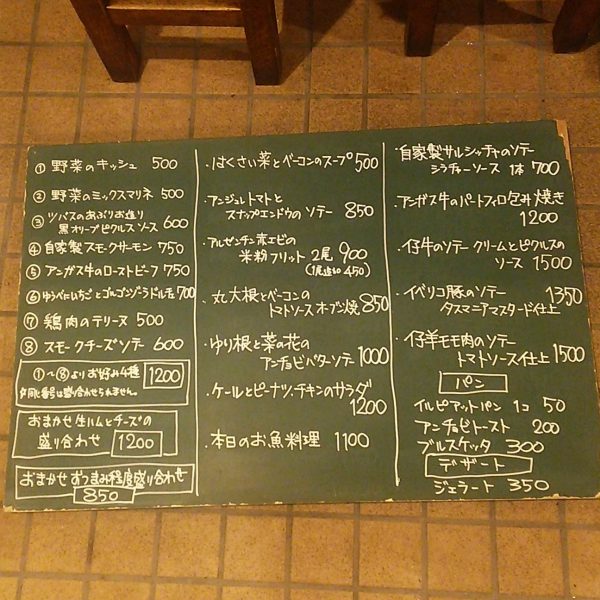 ① 野菜のキッシュ 500
② 野菜のミックスマリネ 500
③ ツバスのあぶりお造り
黒オリーブピクルスソース 600
④ 自家製スモークサーモン 750
⑤ アンガス牛のローストビーフ 750
⑥ ゆうべにいちごとゴルゴンゾーラドルチェ 700
⑦ 鶏肉のテリーヌ 500
⑧ スモークチーズソテー 600
①〜⑧よりお好み4種 1200
同じ番号は盛合わせられません。
おまかせ 生ハムとチーズの
盛り合わせ 1200
おまかせ おつまみ程度盛り合わせ
850
・はくさい菜とベーコンのスープ 500
・アンジュレトマトと
スナップエンドウのソテー 850
・アルゼンチン赤エビの
米粉フリット 2尾 900
(1尾追加 450)
・丸大根とベーコンの
トマトソースオーブン焼 850
・ゆり根と菜の花の
アンチョビバターソテー 1000
・ケールとピーナツ、チキンのサラダ
1200
・本日のお魚料理 1100
・自家製サルシッチャのソテー
シラチャーソース 1本 700
・アンガス牛のパートフィロ包み焼き
1200
・仔牛のソテー クリームとピクルスの
ソース 1500
・イベリコ豚のソテー 1350
タスマニアマスタード仕上
・仔羊モモ肉のソテー
トマトソース仕上 1500
パン
イルピアットパン 1コ 50
アンチョビトースト 200
ブルスケッタ 300
デザート
ジェラート 350